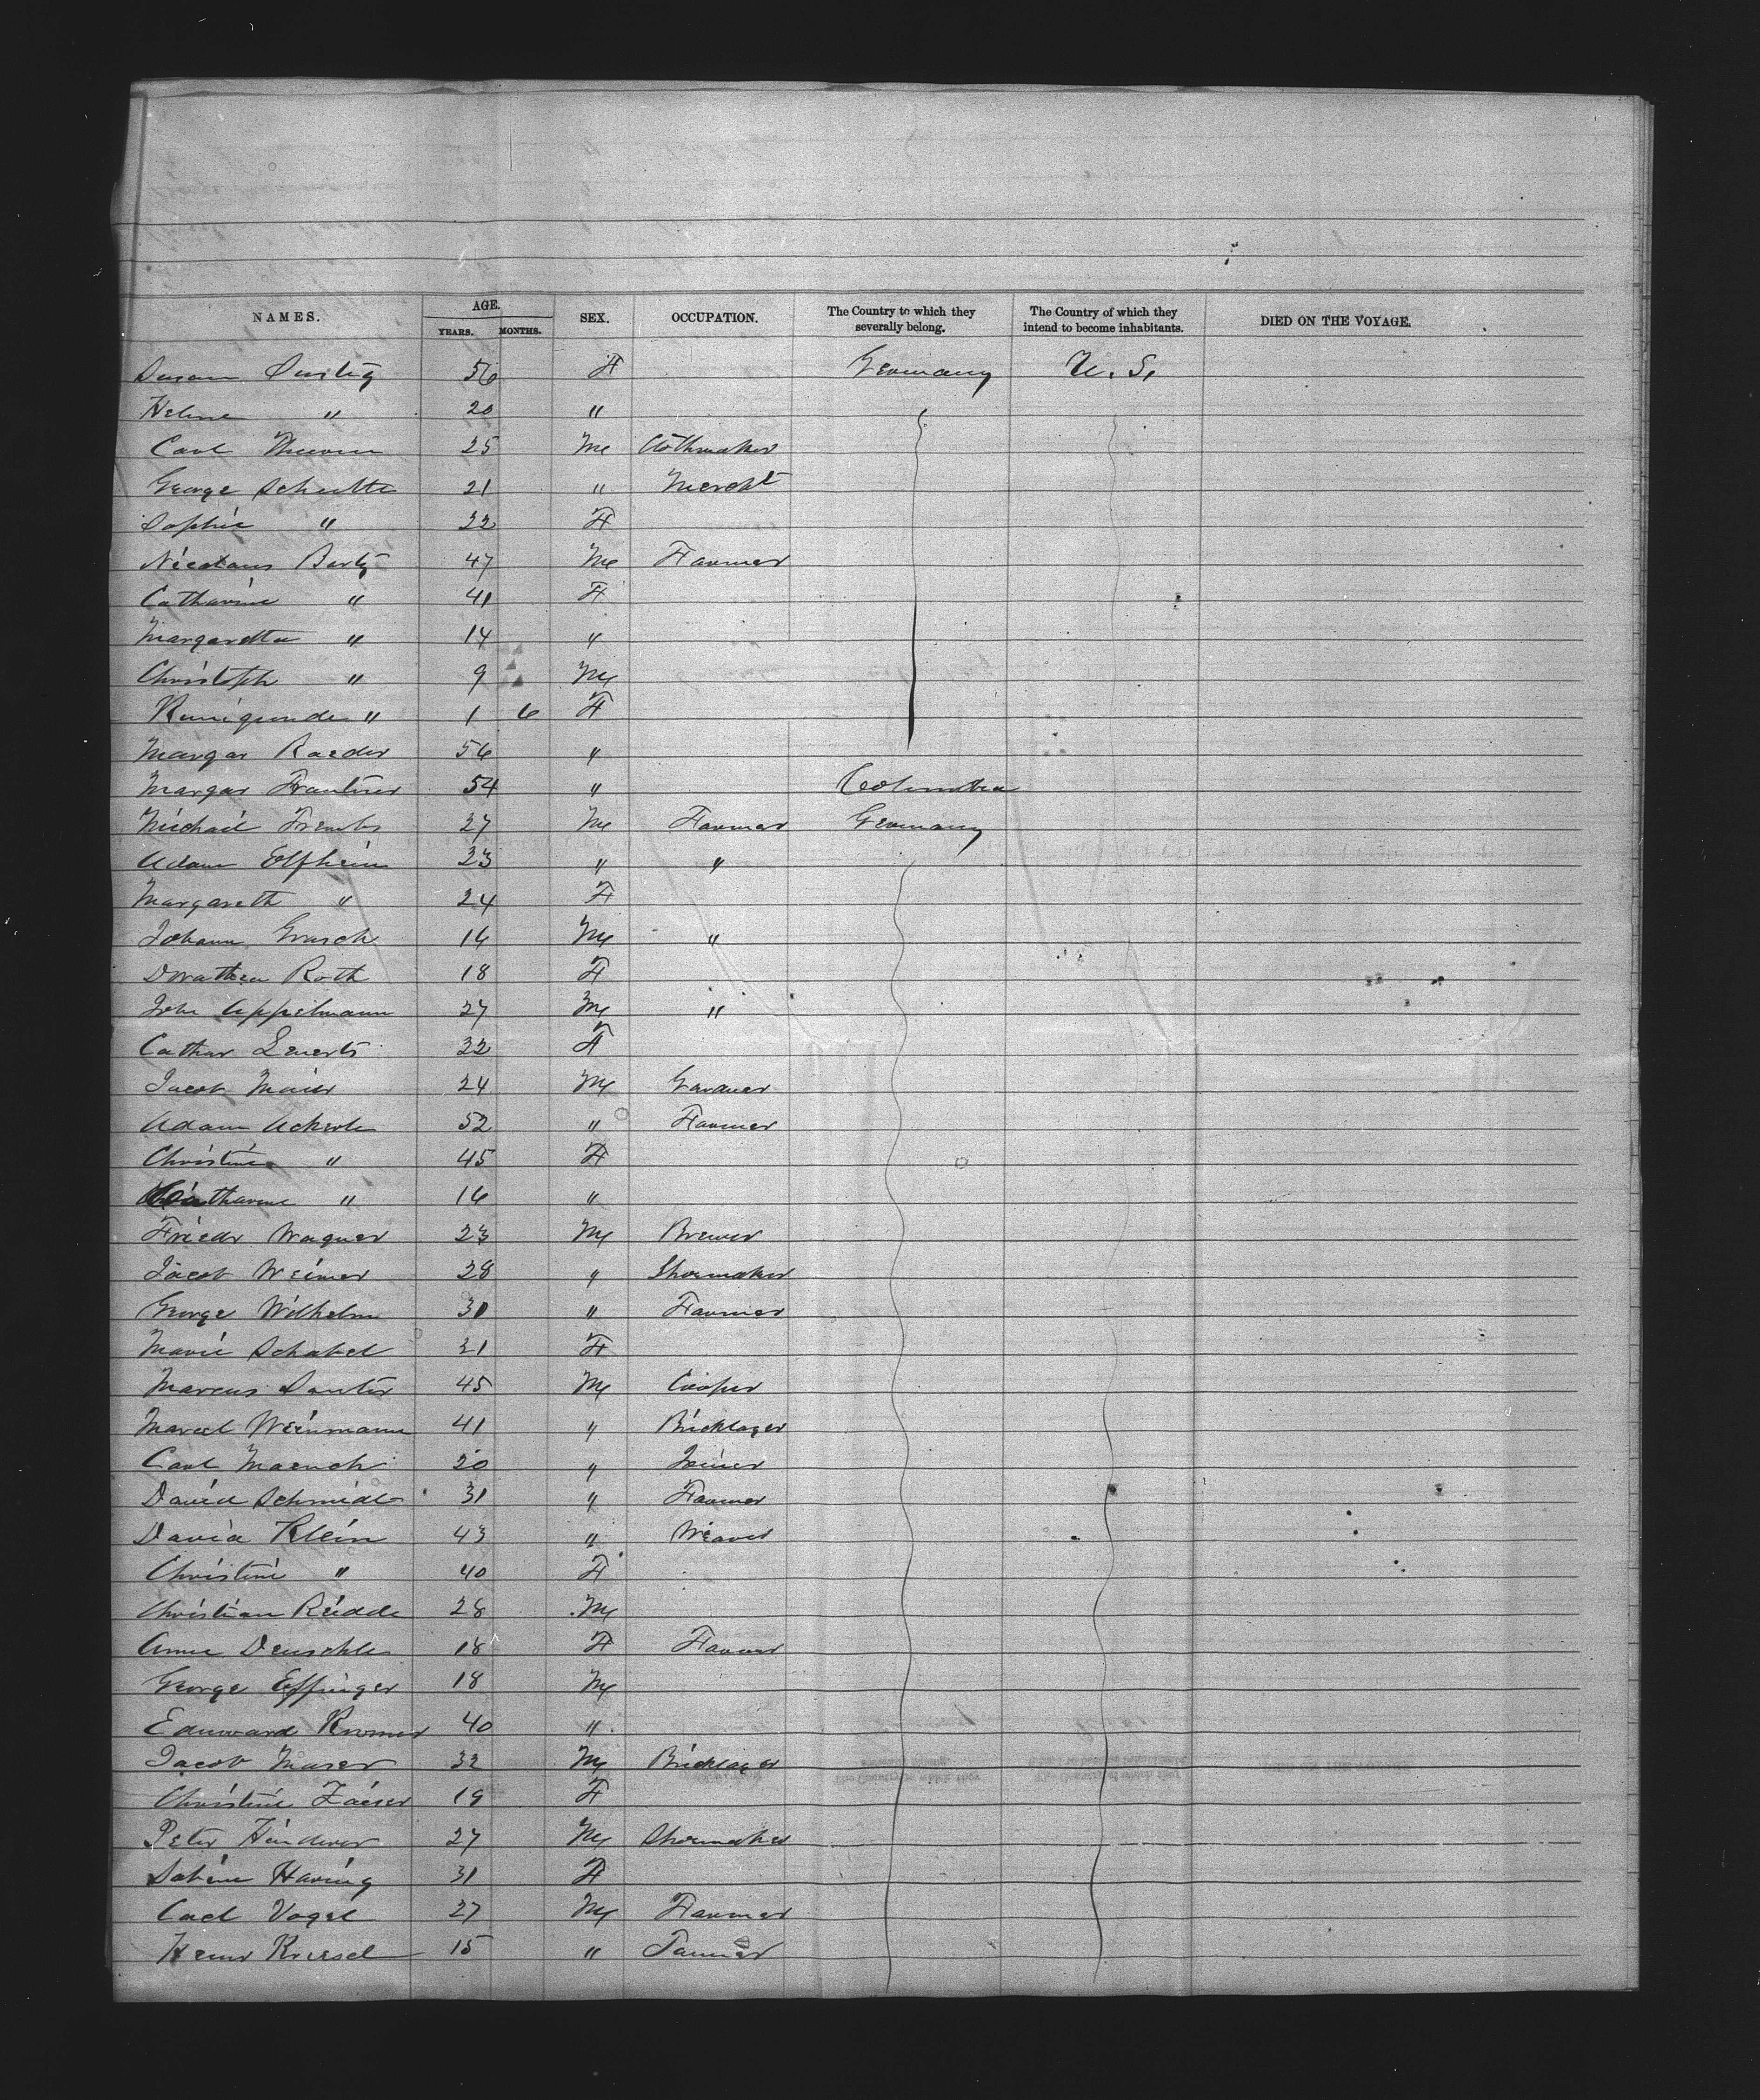 NAMES. AGE. YEARS. MONTHS. SEX. OCCUPATION. The Country to which they severally belong. The Country of which they intend to become inhabitants. DIED ON THE VOYAGE.
Susan 56 F Germany U. S.
Helene " 20 "
Carl 25 M Clothmaker
George Schulte 21 " Mercht
Sophie " 22 F
Nicolaus Bartz 47 M Farmer
Catharine " 41 F
Margaretta " 14 "
Christoph " 9 M
Kunigunde " 1 6 F
Margar Raeder 56 "
Margar 54 " Columbia
Michael 27 M Farmer Germany
Adam Elfhein 23 " "
Margareth " 24 F
Johann Grasch 16 M "
Dorathea Roth 18 F
John Appelmann 27 M "
Cathar 22 F
Jacob Maier 24 M Gardner
Adam Ackerle 52 " Farmer
Christine " 45 F
Catharine " 16 "
Friedr Wagner 23 M Brewer
Jacob Weimer 28 " Shoemaker
George Wilhelm 30 " Farmer
Marie Schabel 21 F
Marcus Sauter 45 M Cooper
Weinmann 41 " Bricklayer
Carl Maench 20 " Joiner
David Schmidt 31 " Farmer
David Klein 43 " Weaver
Christine " 40 F
Christian 28 M
Anna Deuschle 18 F Farmer
George Effinger 18 M
Edouard Kromer 40 "
Jacob Maser 32 M Bricklayer
Christine Zaiser 19 F
Peter 27 M Shoemaker
Sabine Haring 31 F
Carl Vogel 27 M Farmer
Henr Kriesel 15 " Tanner